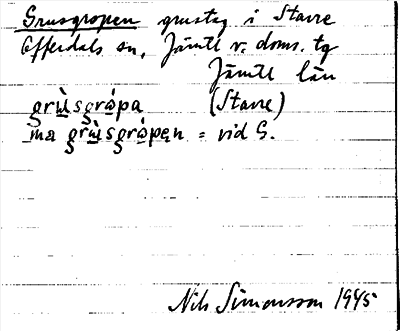 Grusgropen grustag i Stavre
Offerdals sn, Jämtl v. doms. tg
Jämtl län
grùsgrópa (Stavre)
ma grùsgrópen = vid G.
Nils Simonsson 1945